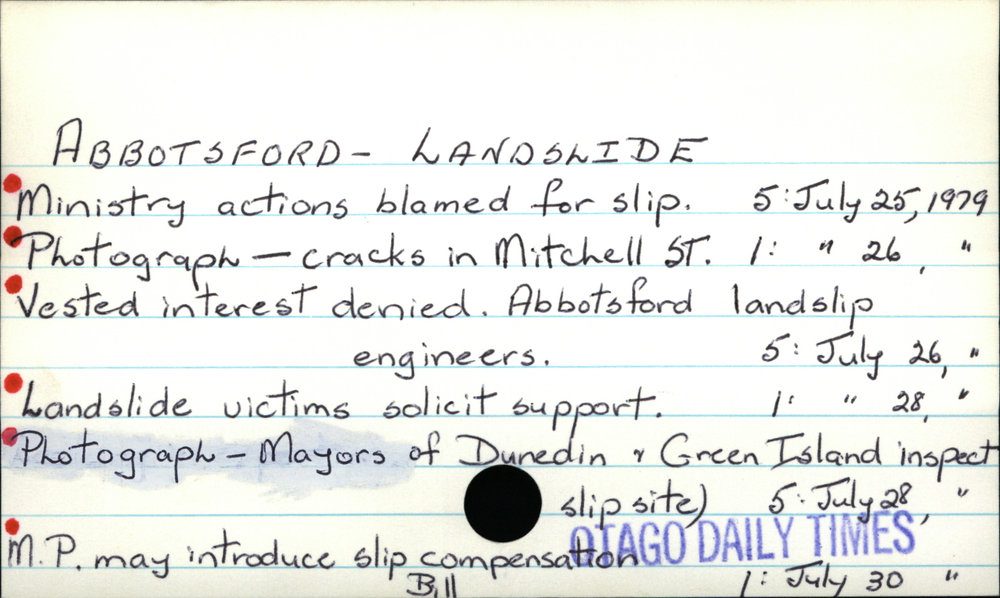 ABBOTSFORD - LANDSLIDE
Ministry actions blamed for slip. 5: July 25, 1979
Photograph — cracks in Mitchell ST. 1: " 26, "
Vested interest denied. Abbotsford landslip
engineers. 5: July 26, "
Landslide victims solicit support. 1: " 28, "
Photograph - Mayors of Dunedin & Green Island inspect
slip site) 5: July 28, "
OTAGO DAILY TIMES
M.P. may introduce slip compensation
Bill 1: July 30 "